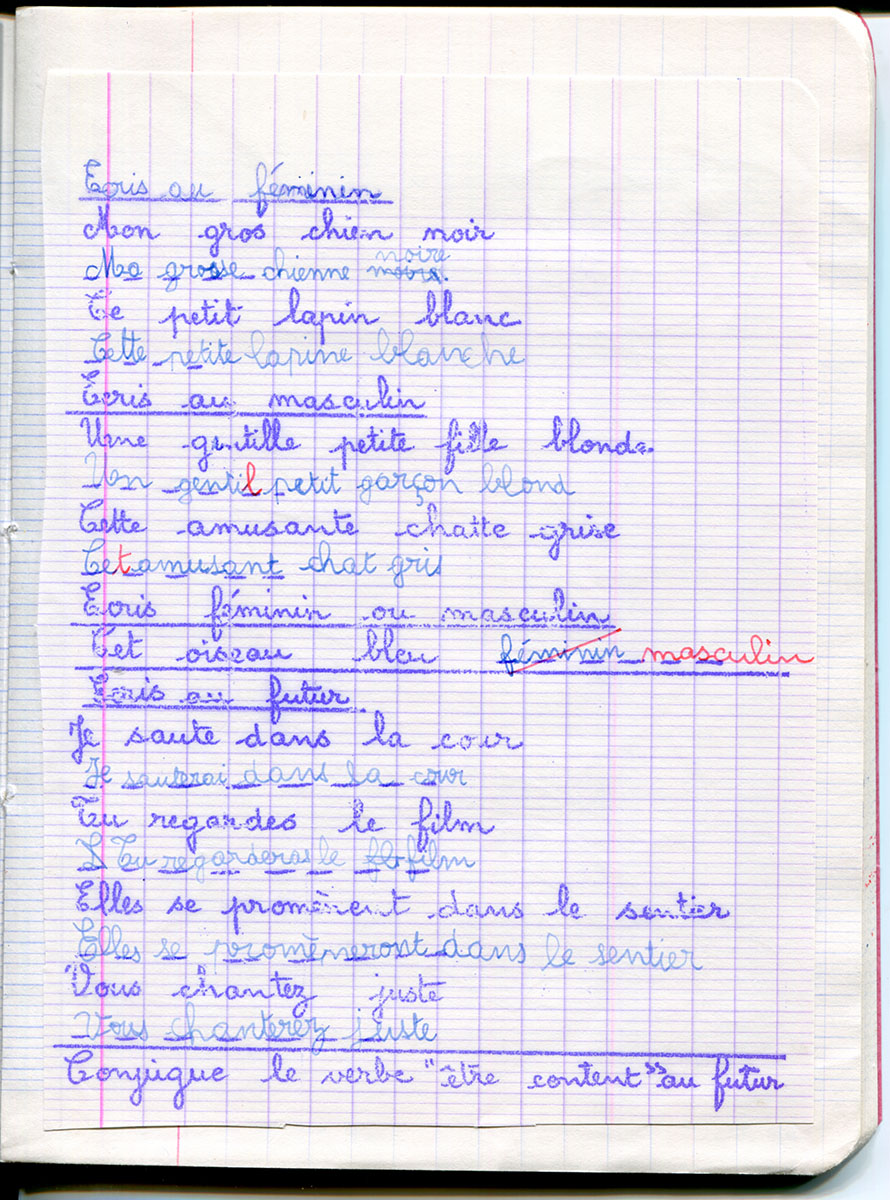 Ecris au féminin
Mon gros chien noir
noire
Ma grosse chienne
Ce petit lapin blanc
Cette petite lapine blanche
Ecris au masculin
Une gentille petite fille blonde.
Un gentil petit garçon blond
Cette amusante chatte grise
Cet amusant chat gris
Ecris féminin ou masculin
Cet oiseau bleu féminin masculin
Ecris au futur
Je saute dans la cour
Je sauterai dans la cour
Tu regardes le film
Tu regarderas le film
Elles se promènent dans le sentier
Elles se promèneront dans le sentier
Vous chantez juste
Vous chanterez juste
Conjugue le verbe "être content" au futur